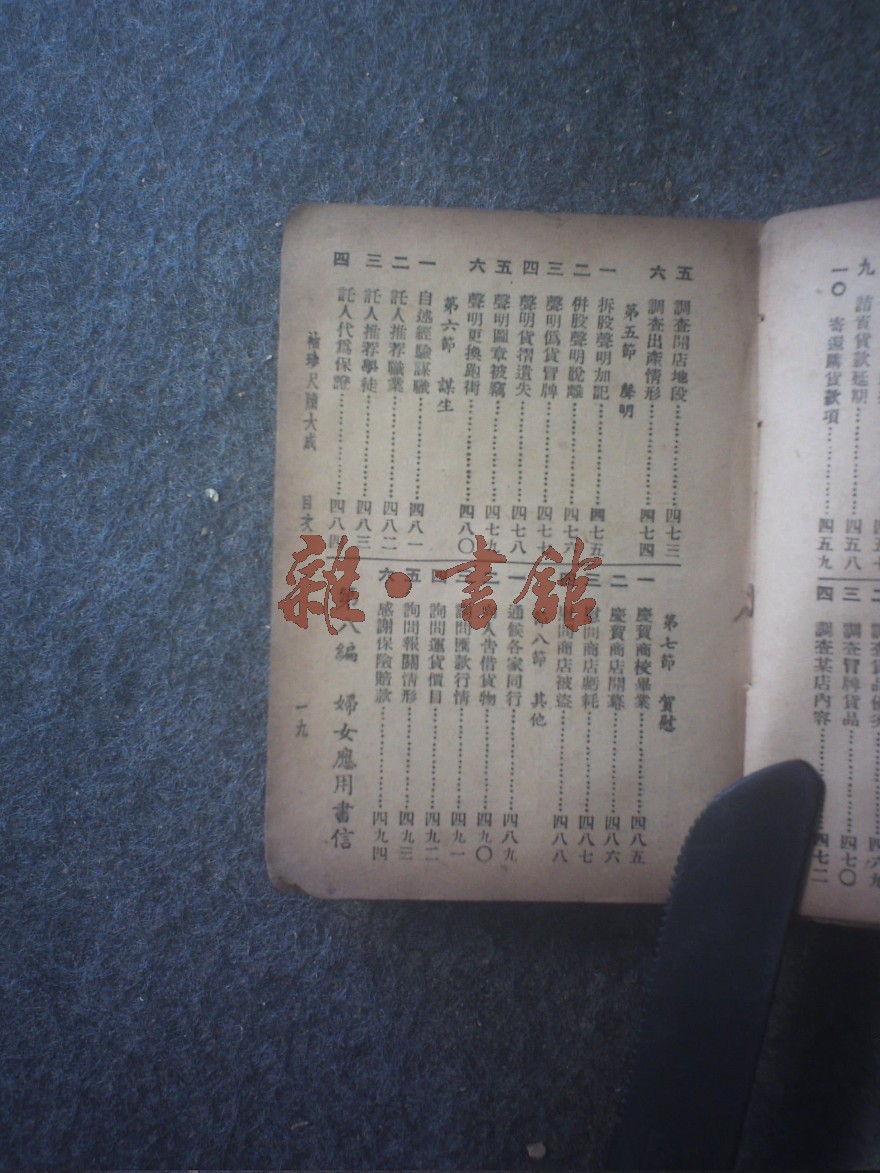 九　請宜貨款延期……四五八
一〇　寄還購貨款項……四五九
二　調查貨品優劣……四六九
三　調查冒牌貨品……四七〇
四　調查某店內容……四七二
五　調查開店地段……四七三
六　調查出產情形……四七四
第五節　聲明
一　拆股聲明加記……四七五
二　併股聲明脫離……四七六
三　聲明僞貨冒牌……四七七
四　聲明貨摺遺失……四七八
五　聲明圖章被竊……四七九
六　聲明更換跑街……四八〇
第六節　謀生
一　自述經驗謀職……四八一
二　託人推荐職業……四八二
三　託人推荐學徒……四八三
四　託人代爲保證……四八四
第七節　賀慰
一　慶賀商校畢業……四八五
二　慶賀商店開幕……四八六
三　慰問商店虧耗……四八七
四　慰問商店被盜……四八八
第八節　其他
一　通候各家同行……四八九
二　人告借貨物……四九〇
三　詢問匯款行情……四九一
四　詢問運貨價目……四九二
五　詢問報關情形……四九三
六　感謝保險賠款……四九四
第八編　婦女應用書信
袖珍尺牘大成　目次　一九
雜·書館